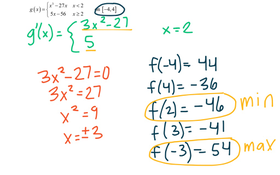 g(x) = { x³-27x x≤2 [-4,4]
5x-56 x≥2
g'(x) = { 3x²-27
5
x=2
3x²-27=0
3x²=27
x²=9
x=±3
f(-4)=44
f(4)=-36
f(2)=-46 min
f(3)=-41
f(-3)=54 max